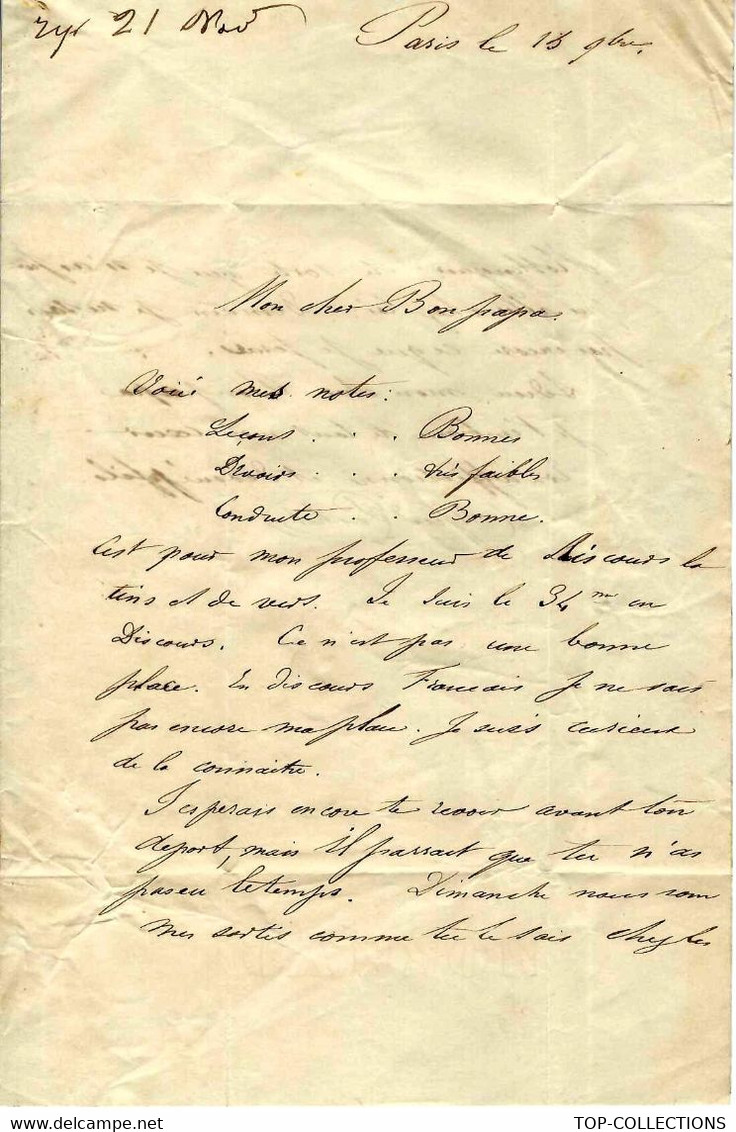 21 Nov
Paris le 15 9bre.
Mon cher Bon papa.
Voici mes notes:
Leçons . . . Bonnes
Devoirs . . . très faibles
Conduite . . Bonne.
C'est pour mon professeur de Discours la
tins et de vers. Je suis le 34me en
Discours. Ce n'est pas une bonne
place. En discours Francais je ne sais
pas encore ma place. Je suis curieux
de la connaitre.
J'esperais encore te revoir avant ton
depart, mais il parrait que tu n'as
pas eu le temps. Dimanche nous som
mes sortis comme tu le sais chez les
TOP-COLLECTIONS